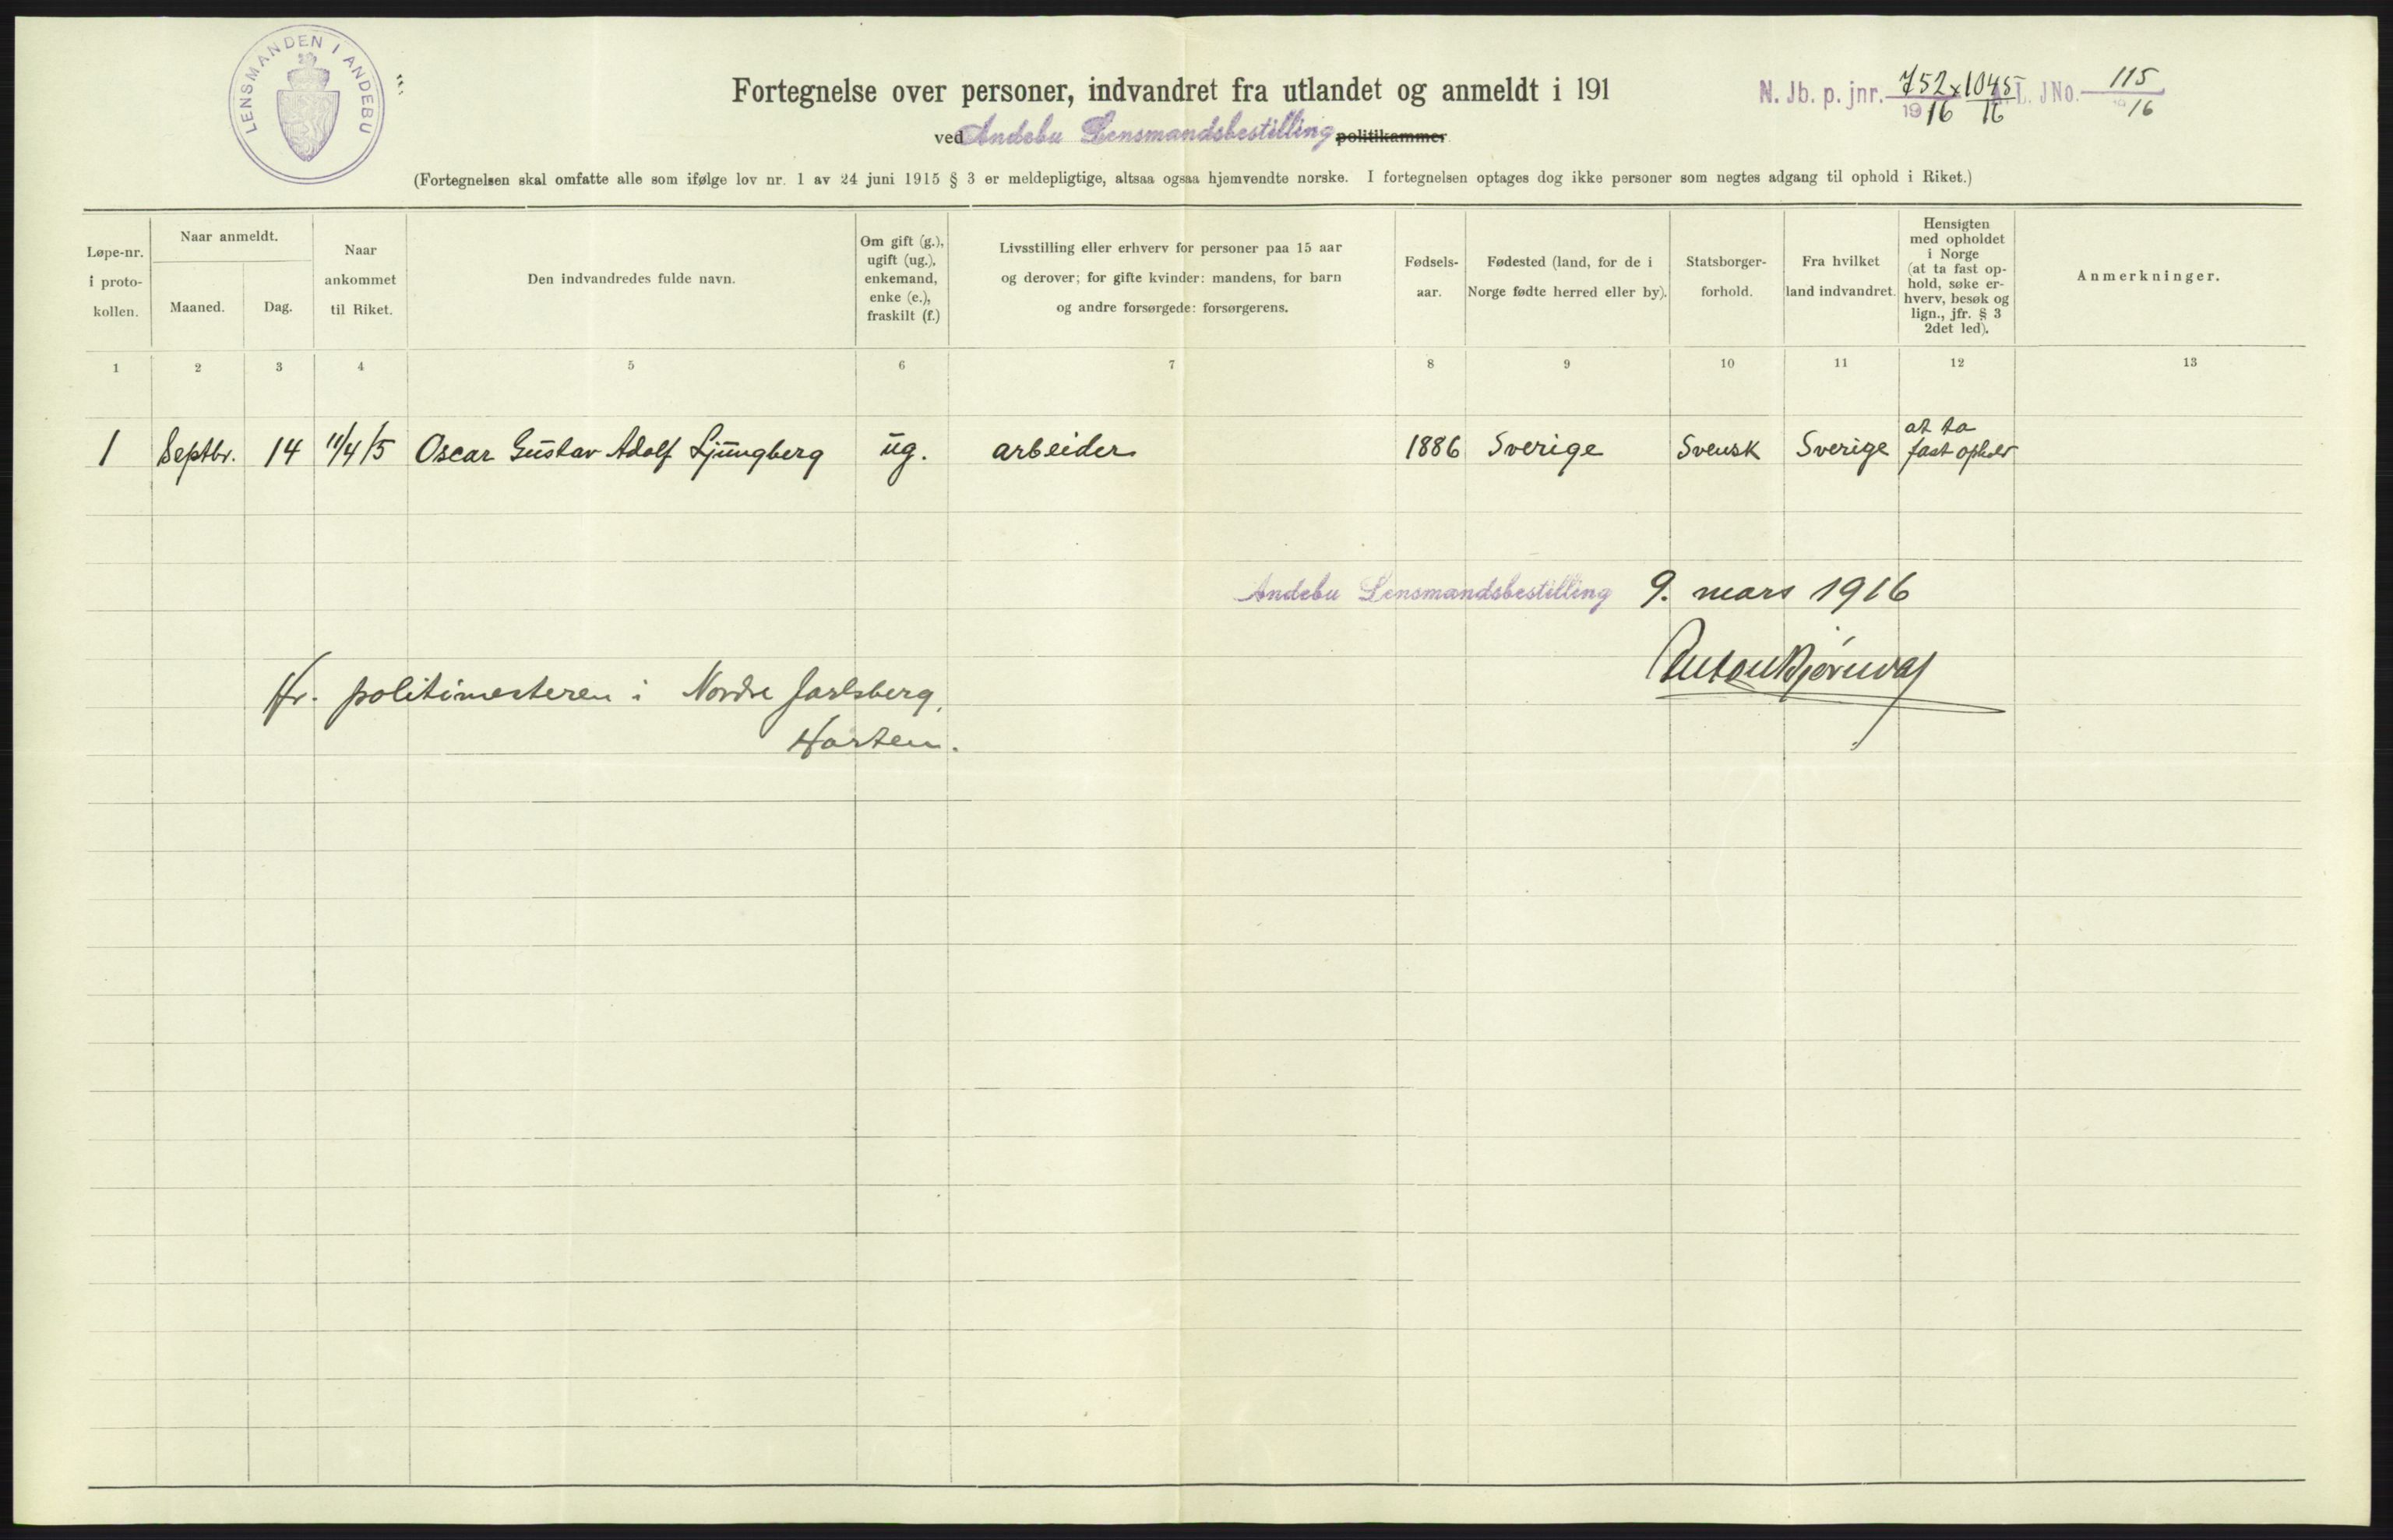 LENSMANDEN I ANDEBU
Fortegnelse over personer, indvandret fra utlandet og anmeldt i 191
N. Jb. p. jnr. 752 x 1045 L. JNo. 115
19 16 16 16
ved Andebu Lensmandsbestilling politikammer
(Fortegnelsen skal omfatte alle som ifølge lov nr. 1 av 24 juni 1915 § 3 er meldepligtige, altsaa ogsaa hjemvendte norske. I fortegnelsen optages dog ikke personer som negtes adgang til ophold i Riket.)
Løpe-nr.
i proto-
kollen.
Naar anmeldt.
Maaned.
Dag.
Naar
ankommet
til Riket.
Den indvandredes fulde navn.
Om gift (g.),
ugift (ug.),
enkemand,
enke (e.),
fraskilt (f.)
Livsstilling eller erhverv for personer paa 15 aar
og derover; for gifte kvinder: mandens, for barn
og andre forsørgede: forsørgerens.
Fødsels-
aar.
Fødested (land, for de i
Norge fødte herred eller by).
Statsborger-
forhold.
Fra hvilket
land indvandret.
Hensigten
med opholdet
i Norge
(at ta fast op-
hold, søke er-
hverv, besøk og
lign., jfr. § 3
2det led).
Anmerkninger.
1 2 3 4 5 6 7 8 9 10 11 12 13
1 Septbr. 14 11/4 15 Oscar Gustav Adolf Ljungberg ug. arbeider 1886 Sverige Svensk Sverige at ta
fast ophold
Andebu Lensmandsbestilling 9. mars 1916
Hr. politimesteren i Nordre Jarlsberg,
Horten.